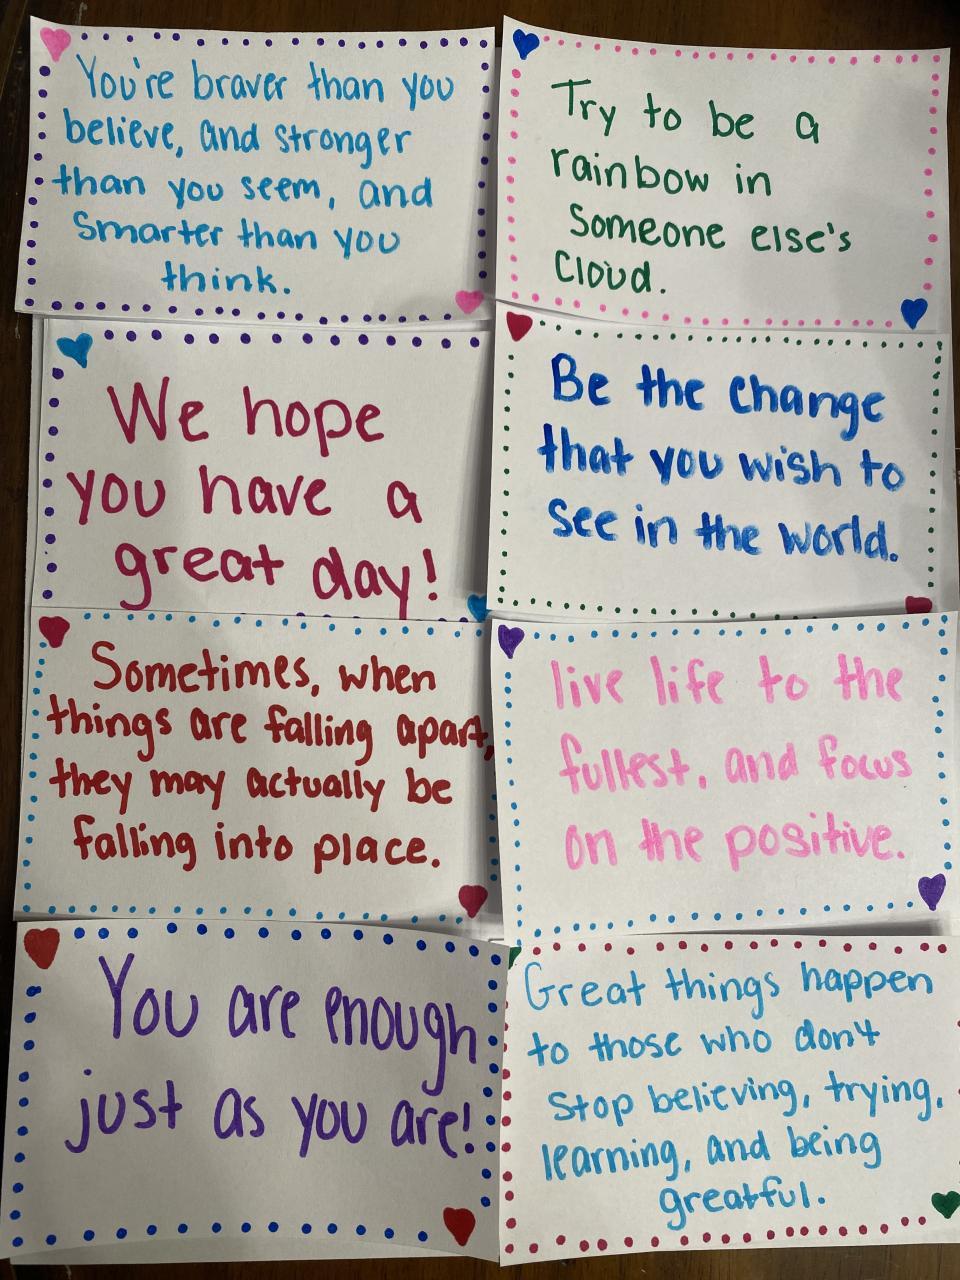 You're braver than you
believe, and stronger
than you seem, and
smarter than you
think.
Try to be a
rainbow in
someone else's
cloud.
We hope
you have a
great day!
Be the change
that you wish to
see in the world.
Sometimes, when
things are falling apart,
they may actually be
falling into place.
live life to the
fullest, and focus
on the positive.
You are enough
just as you are!
Great things happen
to those who don't
stop believing, trying,
learning, and being
greatful.